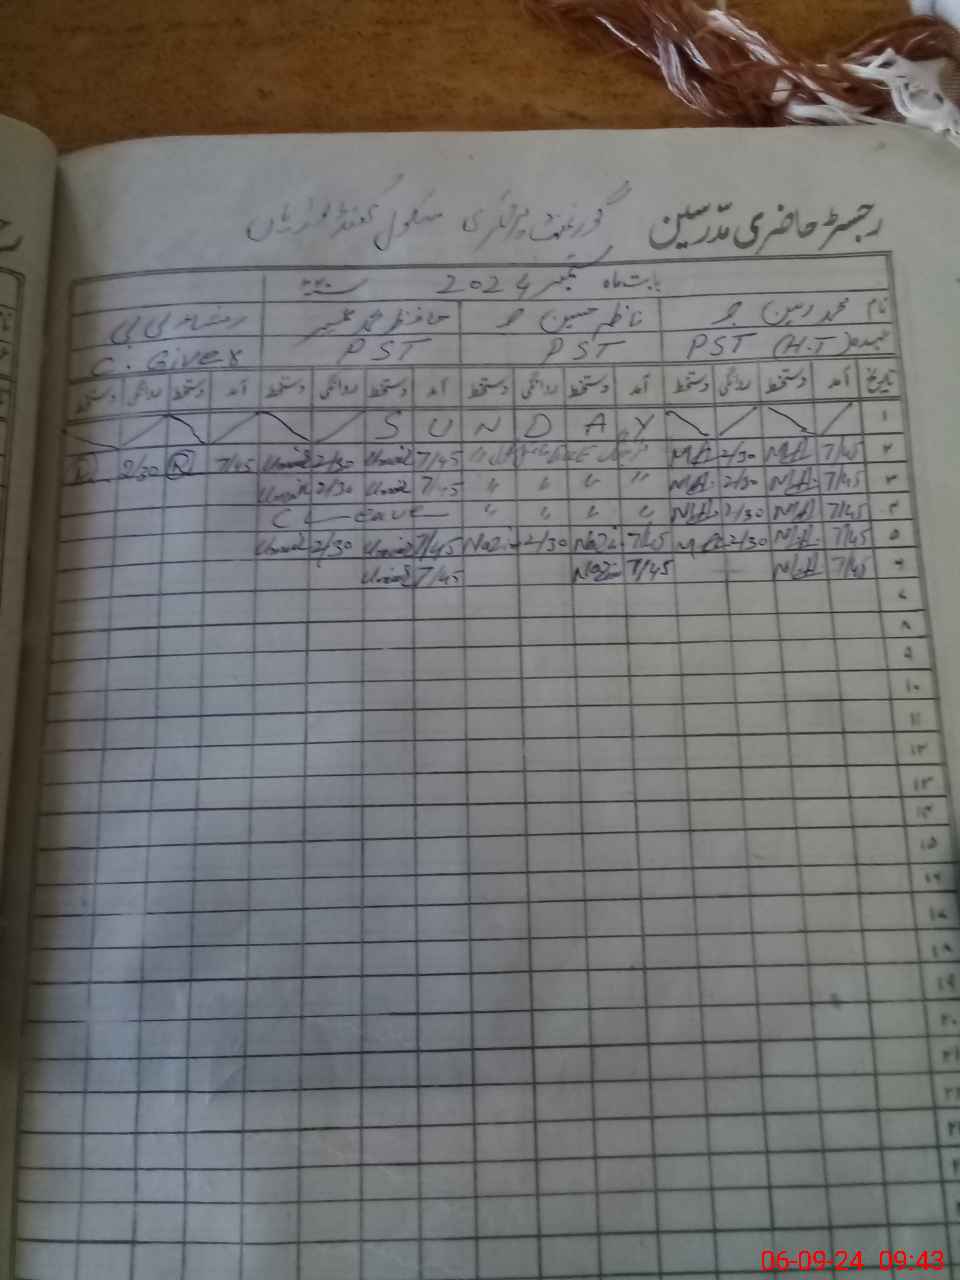 رجسٹر حاضری مدرسین گورنمنٹ پرائمری سکول
بابت ماہ ستمبر 2024
نام محمد ناظم حسین حافظ محمد عمیر بی بی
عہدہ PST (H.T) PST PST C. Giver
تاریخ آمد دستخط روانگی دستخط آمد دستخط روانگی دستخط آمد دستخط روانگی دستخط آمد دستخط روانگی دستخط
۱ S U N D A Y
۲ 7/45 2/30 7/45 Umair 2/30 Umair 7/45 R 2/30 R
۳ 7/45 2/30 " " " " 7/45 Umair 2/30 Umair
۴ 7/45 2/30 " " " C Leave
۵ 7/45 2/30 7/45 Nazim 2/30 Nazim 7/45 Umair 2/30 Umair
۶ 7/45 7/45 Nazim 7/45 Umair
۷
۸
۹
۱۰
۱۱
۱۲
۱۳
۱۴
۱۵
۱۶
۱۷
۱۸
۱۹
۲۰
۲۱
06-09-24 09:43